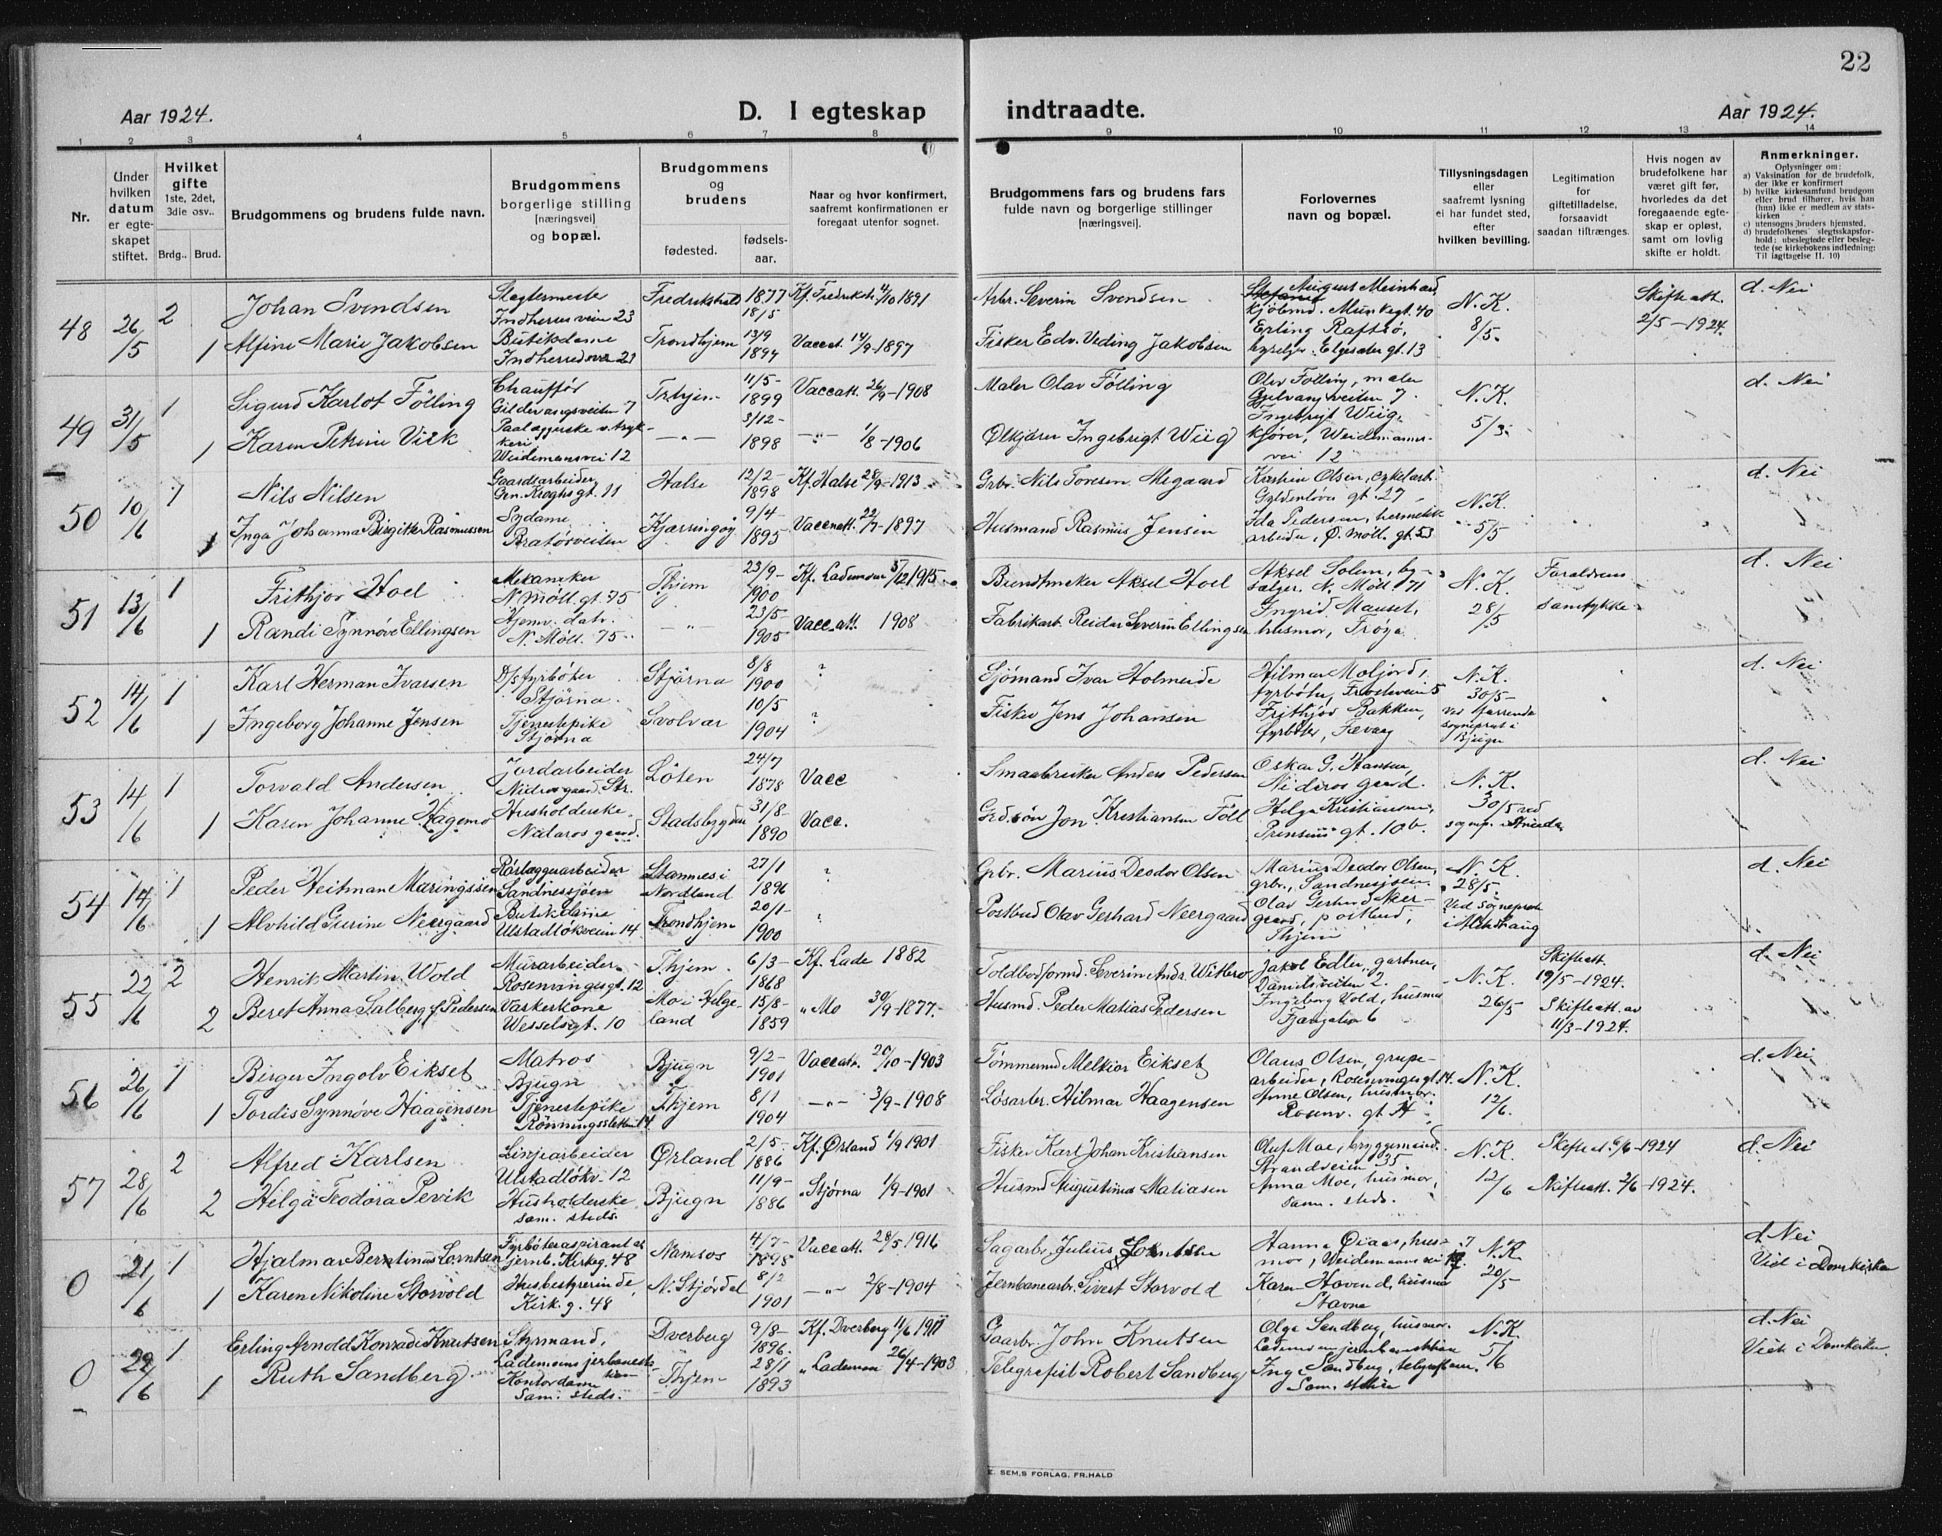 22
Aar 1924.
D. I egteskap indtraadte.
Aar 1924.
1 2 3 4 5 6 7 8 9 10 11 12 13 14
Nr.
Under hvilken datum er egteskapet stiftet.
Hvilket gifte 1ste, 2det, 3die osv..
Brdg..
Brud.
Brudgommens og brudens fulde navn.
Brudgommens borgerlige stilling [næringsvei] og bopæl.
Brudgommens og brudens
fødested.
fødsels-aar.
Naar og hvor konfirmert, saafremt konfirmationen er foregaat utenfor sognet.
Brudgommens fars og brudens fars fulde navn og borgerlige stillinger [næringsvei].
Forlovernes navn og bopæl.
Tillysningsdagen eller saafremt lysning ei har fundet sted, efter hvilken bevilling.
Legitimation for giftetilladelse, forsaavidt saadan tiltrænges.
Hvis nogen av brudefolkene har været gift før, hvorledes da det foregaaende egteskap er opløst, samt om lovlig skifte er holdt.
Anmerkninger.
Oplysninger om:
a) Vaksination for de brudefolk, der ikke er konfirmert
b) hvilke kirkesamfund brudgom eller brud tilhører, hvis han (hun) ikke er medlem av statskirken
c) utensogns bruders hjemsted,
d) brudefolkenes slegtsskapsforhold: ubeslegtede eller beslegtede (se kirkebokens indledning: Til Iagttagelse II. 10)
48 26/5 2 Johan Svendsen Indherredsveien 23 Fredrikshald 1877 18/5 Kf. Fredriksh. 4/10 1891 Arbr. Severin Svendsen August Meinhard, kjøbmd. Munkegt. 40 N.K. 8/5. Skifteatt. 2/5-1924. d. Nei
1 Alfine Marie Jakobsen Butikdame Indherredsv. 23 Trondhjem 13/9 1894 Vaccat. 14/9-1897 Fisker Edv. Veding Jakobsen Erling Raftsø, Elgesæter gt. 13
49 31/5 1 Sigurd Karlot Følling Chauffør Gildevangsveiten 7 Trhjem 11/5-1899 Vaccatt. 26/9-1908 Maler Olav Følling Olav Følling, maler Gjelvangsveiten 7. N.K. 5/3. d. Nei
1 Karen Petrine Viik Weidemansvei 12 -"- 3/12-1898 -"- 1/8-1906 Ølkjører Ingebrigt Wiig Ingebrigt Wiig, kjører, Weidemannsvei 12
50 10/6 1 Nils Nilsen Gaardsarbeider Gen. Kroghsgt. 11 Halse 12/2-1898 Kf. Halse 28/9-1913 Grbr. Nils Toresen Megaard Kirstin Olsen, cykelarb. Gyldenløves gt. 27 N.K. 5/5 d. Nei
1 Inga Johanna Birgitte Rasmussen Sydame Bratørveiten Kjærringøy 9/4-1895 Vaccatt. 22/7-1897 Husmand Rasmus Jensen Ida Pedersen, hermetikkarbeider, Ø. Møll. gt. 53
51 13/6 1 Frithjov Hoel Mekaniker N. Møll. gt. 75 Thjem 23/9-1900 Kf. Lademoen 5/12 1915 Bundtmaker Aksel Hoel Aksel Solem, N. Møll. 71 N.K. 28/5 Foraldrens samtykke d. Nei
1 Randi Synnøve Ellingsen Hjemv. datr. N. Møll. 75 -"- 23/5 1905 Vacc. att. 1908 Fabrikarb. Reidar Severin Ellingsen Ingrid Mauset, husmor, Frøya
52 14/6 1 Karl Herman Ivarsen D/s fyrbøter Stjørna Stjørna 8/8 1900 ? Sjømand Ivar Holmeide Hilmar Moljord, fyrbøter, N.K. 30/5- ved sogneprest i Bjugn d. Nei
1 Ingeborg Johanne Jensen Tjenestepike Stjørna Svolvær 10/5 1904 ? Fisker Jens Johansen Frithjov Bakken, fyrbøter, Fevaag
53 14/6 1 Torvald Andersen Jordarbeider Nidarosgaard, Str. Løten 24/7 1878 Vacc Smaabruker Anders Pedersen Oskar G. Hansen, Nidaros gaard. N.K. 30/5 ved sognp. i d. Nei
1 Karen Johanne Hagemo Husholderske Nidaros gaard. Stadsbygden 31/8-1890 Vacc. Jon Kristiansen Føll Helga Kristiansen, Prinsens gt. 10b.
54 14/6 1 Peder Heitman Maringssen Rørlæggerarbeider Sandnessjøen Stamnes i Nordland 27/1 1896 ? Grbr. Marius Deodor Olsen Marius Deodor Olsen, grbr., Sandnessjøen N.K. 28/5. Ved sogneprest i Alstahaug d. Nei
1 Alvhild Gurine Neergaard Butikdame Ulstadløkveien 14 Trondhjem 20/1-1900 ? Postbud Olav Gerhard Neergaard Olav Gerhard Neergaard, postbud, Thjem
55 22/6 2 Henrik Martin Wold Murarbeider Rosenvingesgt. 12 Thjem. 6/3-1868 Kf. Lade 1882 Toldbodformd. Severin Andr. Witbro Jakob Edler, gartner, Danielsveiten 2. N.K. 26/5 Skifteatt. 19/5-1924. d. Nei
2 Beret Anna Salberg f. Pedersen Vaskerkone Wesselsgt. 10 Mo i Helgeland 15/8-1859 " Mo 30/9-1877. Husmd. Peder Matias Pedersen Ingeborg Vold, husmor 6 Skifteatt. av 11/3-1924.
56 26/6 1 Birger Ingolv Eikset Matros Bjugn Bjugn 9/2-1901 Vaccatt. 20/10-1903 Tømmermd Melkior Eikset Olaus Olsen, grubearbeider, Rosenvingesgt. 14. N.K. 12/6. d. Nei
1 Tordis Synnøve Haagensen Tjenestepike Rønningsletten 14 Thjem 8/1 1904 -"- 3/9-1908 Løsarbr. Hilmar Haagensen Anne Olsen, husmor. Rosenv. gt. 14
57 28/6 2 Alfred Karlsen Linjearbeider Ulstadløkv. 12 Ørland 2/5-1886 Kf. Ørland 1/9 1901 Fisker Karl Johan Kristiansen Oluf Moe, bryggemand. Strandveien 35. N.K. 12/6 Skifteat. 6/6-1924 d. Nei
2 Helga Teodora Pevik Husholderske sam. steds. Bjugn 11/9-1886 " Stjørna 1/9-1901 Husmd Augustinus Matiasen Anna Moe, husmor, sam. steds. Skifteatt. 2/6-1924.
0 21/6 1 Hjalmar Berntinus Lorntsen Fyrbøteraspirant v. jernb. Kirkeg. 48 Namsos 4/7-1895 Vaccatt. 28/5 1916 Sagarbr. Julius Lorntsen Hanna Øiaas, husmor, Weidemansvei N.K. 20/5 d. Nei Viet i Domkirken
1 Karen Nikoline Storvold Husbestyrerinde, Kirkeg. 48 N. Stjørdal 8/2 1901 -"- 2/8-1904 Jernbanearb. Sivert Storvold Karen Hovend, husmor Stavne
0 22/6 1 Erling Arnold Konradi Knutsen Styrmand, Dverberg 9/8-1896. Kf. Dverberg 11/6 1911 Gaarbr. John Knutsen Olga Sandberg, husmor. Lademoen jernbanestation N.K. 5/6 d. Nei Viet i Domkirken.
1 Ruth Sandberg Lademoens jerbanestation Kontordame Sam. steds. Thjem 28/1 1893 " Lademoen 26/4-1903 Telegrafist Robert Sandberg Inga Sandberg, telegrafistinde Sam. steds
E. SEM,S FORLAG, FR.HALD